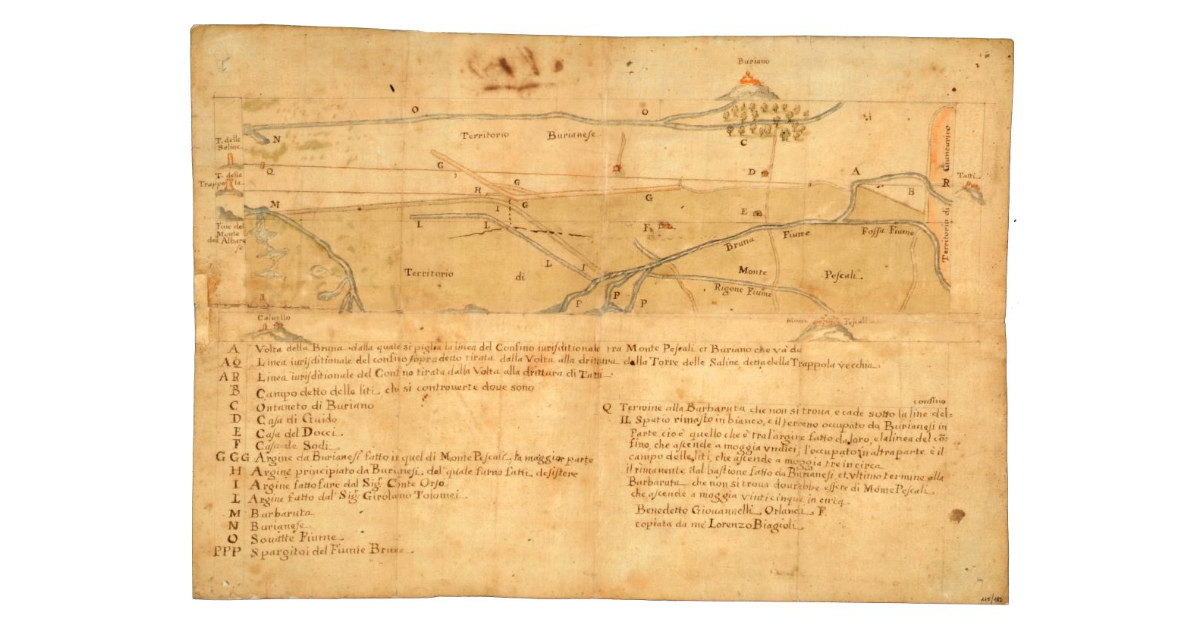 Buriano
O
O
T. delle Saline
N
Territorio Burianese
C
G
Q
D
A
T. delle
H
G
G
G
B
R
Tatti
M
I
L
L
E
F
Bruna Fiume
Fossa Fiume
Territorio di Giuncarico
del Monte
dell'Albare
Territorio di Monte Pescali
L
I
Rigone Fiume
P P P
Pescali
A Volta della Bruna dalla quale si piglia la linea del Confino iurisditionale tra Monte Pescali et Buriano che va da
AQ Linea iurisditionale del confino sopradetto tirata dalla Volta alla drittura della Torre delle Saline detta della Trappola vecchia
AR Linea iurisditionale del Confino tirata dalla Volta alla drittura di Tatti
B Campo detto delle liti che si controverte dove sono
C Ontaneto di Buriano
D Casa di Guido
E Casa del Docci
F Casa de Sodi
GGG Argine da Burianesi fatto in quel di Monte Pescali la maggior parte
H Argine principiato da Burianesi dal quale furno fatti desistere
I Argine fatto fare dal Sigr Conte Orso
L Argine fatto dal Sigr Girolamo Tolomei
M Barbaruta
N Burianese
O Fiume
PPP Spargitoi del Fiume Bruna
confino
Q Termine alla Barbaruta che non si trova e cade sotto la line del
IL Spatio rimasto in bianco, è il terreno occupato da Burianesi in
Parte cio è quello che è tra l'argine fatto da loro, e la linea del cõ
fino, che ascende a moggia undici; l'occupato in altra parte è il
campo delle liti, che ascende a moggia tre in circa
il rimanente dal bastione fatto da Burianesi, et ultimo termine alla
Barbaruta che non si trova dovrebbe essere di Monte Pescali
che ascende a moggia vinticinque in circa
Benedetto Giovannelli Orlandi F.
copiata da me Lorenzo Biagioli